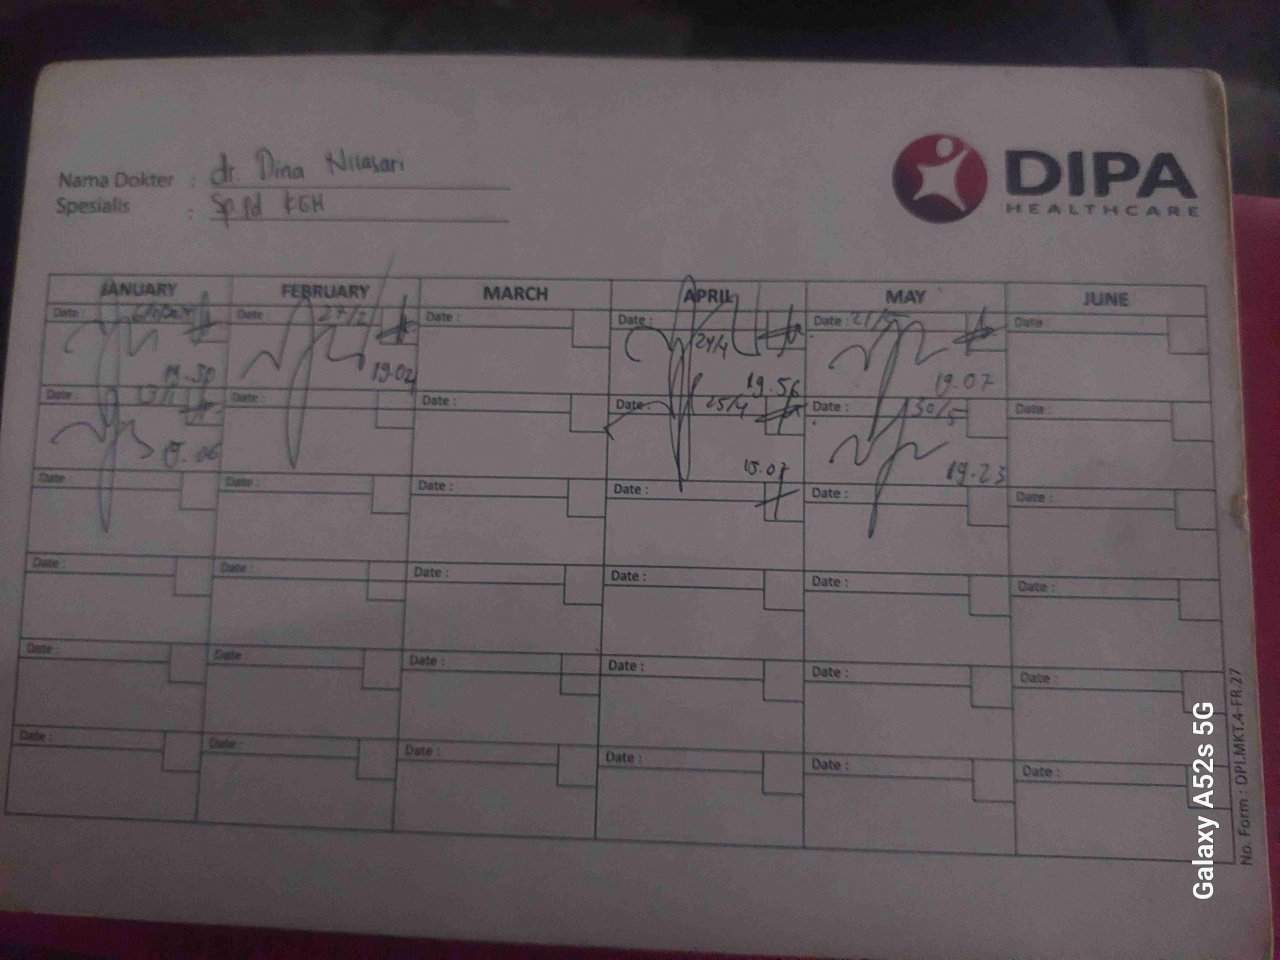 Nama Dokter : dr. Dina Nilasari
Spesialis : Sp.pd KGH
DIPA
HEALTHCARE
JANUARY FEBRUARY MARCH APRIL MAY JUNE
Date Date 27/2 Date : Date : 24/4 Date : 21/5 Date
19.30 19.02 19.56 19.07
Date : Date : Date : Date : 25/4 Date : 30/5 Date :
15.07 19.23
Date Date : Date : Date : Date : Date :
Date : Date : Date : Date : Date : Date :
Date : Date : Date : Date : Date : Date :
Date : Date : Date : Date : Date : Date :
No. Form : DPI.MKT.4-FR.27
Galaxy A52s 5G